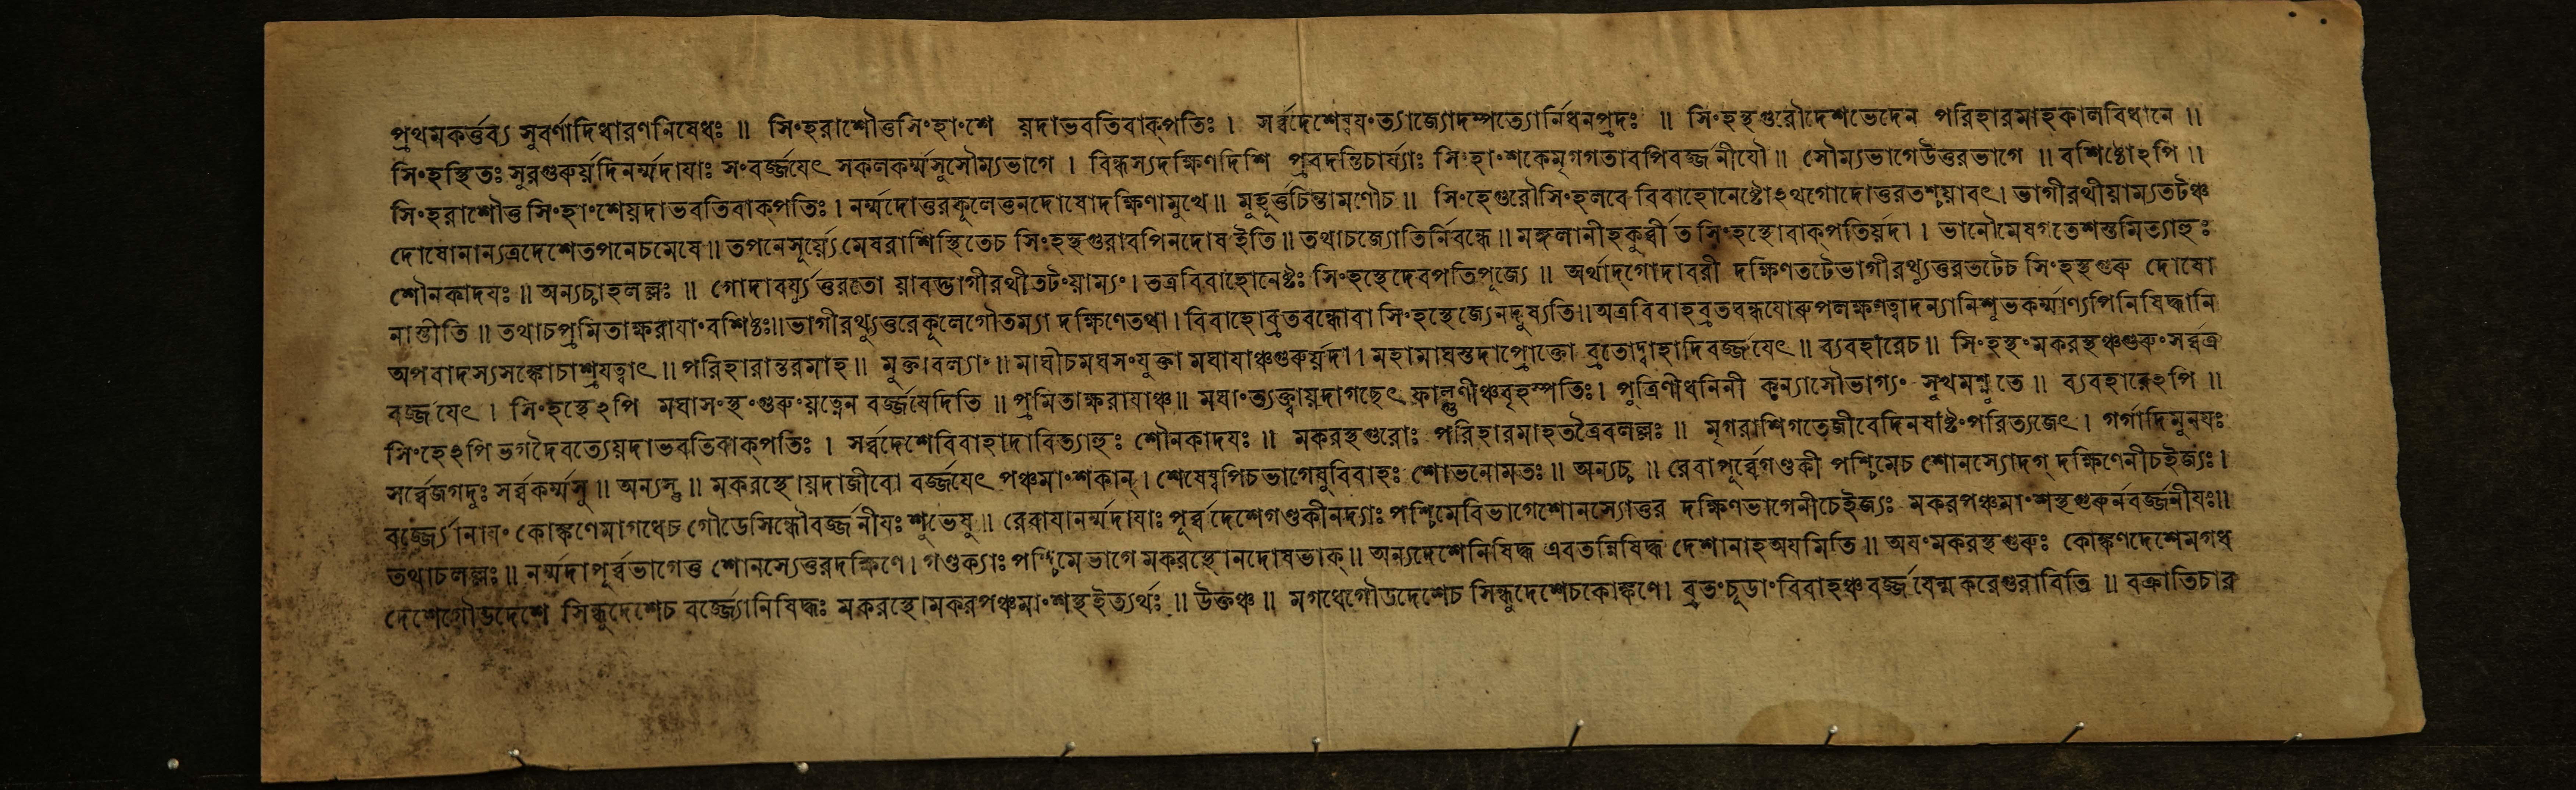 প্রথমকর্ত্তব্য সুবর্ণাদিধারণনিষেধঃ ॥ সিংহরাশৌত্তসিংহাংশে য়দাভবতিবাক্পতিঃ । সর্ব্বদেশেষ্বয়ংত্যাজ্যোদম্পত্যোর্নিধনপ্রদঃ ॥ সিংহস্থগুরৌদেশভেদেন পরিহারমাহকালবিধানে ॥
সিংহস্থিতঃ সুরগুরুর্য়দিনর্ম্মদাযাঃ সংবর্জ্জযেৎ সকলকর্ম্মসুসৌম্যভাগে । বিন্ধস্যদক্ষিণদিশি প্রবদন্তিচার্য্যাঃ সিংহাংশকেমৃগগতাবপিবর্জ্জনীযৌ ॥ সৌম্যভাগেউত্তরভাগে ॥ বশিষ্ঠোঽপি ॥
সিংহরাশৌত্ত সিংহাংশেয়দাভবতিবাক্পতিঃ । নর্ম্মদোত্তরকূলেত্তনদোষোদক্ষিণামুখে ॥ মুহূর্ত্তচিন্তামণৌচ ॥ সিংহেগুরৌসিংহলবে বিবাহোনেষ্টোঽথগোদোত্তরতশ্চয়াবৎ । ভাগীরথীয়াম্যতটঞ্চ
দোষোনান্যত্রদেশেতপনেচমেষে ॥ তপনেসূর্য্যে মেষরাশিস্থিতেচ সিংহস্থগুরাবপিনদোষ ইতি ॥ তথাচজ্যোতির্নিবন্ধে ॥ মঙ্গলানীহকুর্ব্বীত সিংহস্থোবাক্পতির্য়দা । ভানৌমেষগতেশস্তমিত্যাহুঃ
শৌনকাদযঃ ॥ অন্যচ্চাহলল্লঃ ॥ গোদাবর্য্যুত্তরতো য়াবদ্ভাগীরথীতটংয়াম্যং । তত্রবিবাহোনেষ্টঃ সিংহস্থেদেবপতিপূজ্যে ॥ অর্থাদ্গোদাবরী দক্ষিণতটেভাগীরথ্যুত্তরতটেচ সিংহস্থগুরু দোষো
নাস্তীতি ॥ তথাচপ্রমিতাক্ষরাযাংবশিষ্ঠঃ॥ভাগীরথ্যুত্তরেকূলেগৌতম্যা দক্ষিণেতথা । বিবাহোব্রতবন্ধোবা সিংহস্থেজ্যেনদুষ্যতি॥অত্রবিবাহব্রতবন্ধযোরুপলক্ষণত্বাদন্যানিশুভকর্ম্মাণ্যপিনিষিদ্ধানি
অপবাদস্যসঙ্কোচাশ্রযত্বাৎ ॥ পরিহারান্তরমাহ ॥ মুক্তাবল্যাং ॥ মাঘীচমঘসংযুক্তা মঘাযাঞ্চগুরুর্য়দা । মহামাঘস্তদাপ্রোক্তো ব্রতোদ্বাহাদিবর্জ্জযেৎ ॥ ব্যবহারেচ ॥ সিংহস্থংমকরস্থঞ্চগুরুংসর্ব্বত্র
বর্জ্জযেৎ । সিংহস্থেঽপি মঘাসংস্থংগুরুংয়ত্নেন বর্জ্জযেদিতি ॥ প্রমিতাক্ষরাযাঞ্চ ॥ মঘাংত্যক্ত্বায়দাগছেৎ ফাল্গুণীঞ্চবৃহস্পতিঃ । পুত্রিণীধনিনী কন্যাসৌভাগ্যং সুখমশ্নুতে ॥ ব্যবহারেঽপি ॥
সিংহেঽপি ভগদৈবত্যেয়দাভবতিবাক্পতিঃ । সর্ব্বদেশেবিবাহাদাবিত্যাহুঃ শৌনকাদযঃ ॥ মকরস্থগুরোঃ পরিহারমাহতত্রৈবলল্লঃ ॥ মৃগরাশিগতেজীবেদিনষষ্টিংপরিত্যজেৎ । গর্গাদিমুনযঃ
সর্ব্বেজগদুঃ সর্ব্বকর্ম্মসু ॥ অন্যস্চ ॥ মকরস্থোয়দাজীবো বর্জ্জযেৎ পঞ্চমাংশকান্ । শেষেষ্বপিচভাগেষুবিবাহঃ শোভনোমতঃ ॥ অন্যচ্চ ॥ রেবাপূর্ব্বেগণ্ডকী পশ্চিমেচ শোনস্যোদগ্ দক্ষিণেনীচইজ্যঃ ।
বর্জ্জ্যোনাযং কোঙ্কণেমাগধেচ গৌডেসিন্ধৌবর্জ্জনীযঃ শুভেষু ॥ রেবাযানর্ম্মদাযাঃ পূর্ব্বদেশেগণ্ডকীনদ্যাঃ পশ্চিমেবিভাগেশোনস্যোত্তর দক্ষিণভাগেনীচেইজ্যঃ মকরপঞ্চমাংশস্থগুরুর্নবর্জ্জনীযঃ॥
তথাচলল্লঃ ॥ নর্ম্মদাপূর্ব্বভাগেত্ত শোনস্যেত্তরদক্ষিণে । গণ্ডক্যাঃ পশ্চিমেভাগে মকরস্থোনদোষভাক্ ॥ অন্যদেশেনিষিদ্ধ এবতন্নিষিদ্ধ দেশানাহঅযমিতি ॥ অযংমকরস্থগুরুঃ কোঙ্কণদেশেমগধ
দেশেগৌডদেশে সিন্ধুদেশেচ বর্জ্জ্যোনিষিদ্ধঃ মকরস্থে।মকরপঞ্চমাংশস্থইত্যর্থঃ ॥ উক্তঞ্চ ॥ মগধেগৌডদেশেচ সিন্ধুদেশেচকোঙ্কণে । ব্রতংচূডাংবিবাহঞ্চবর্জ্জযেন্মকরেগুরাবিতি ॥ বক্রাতিচার